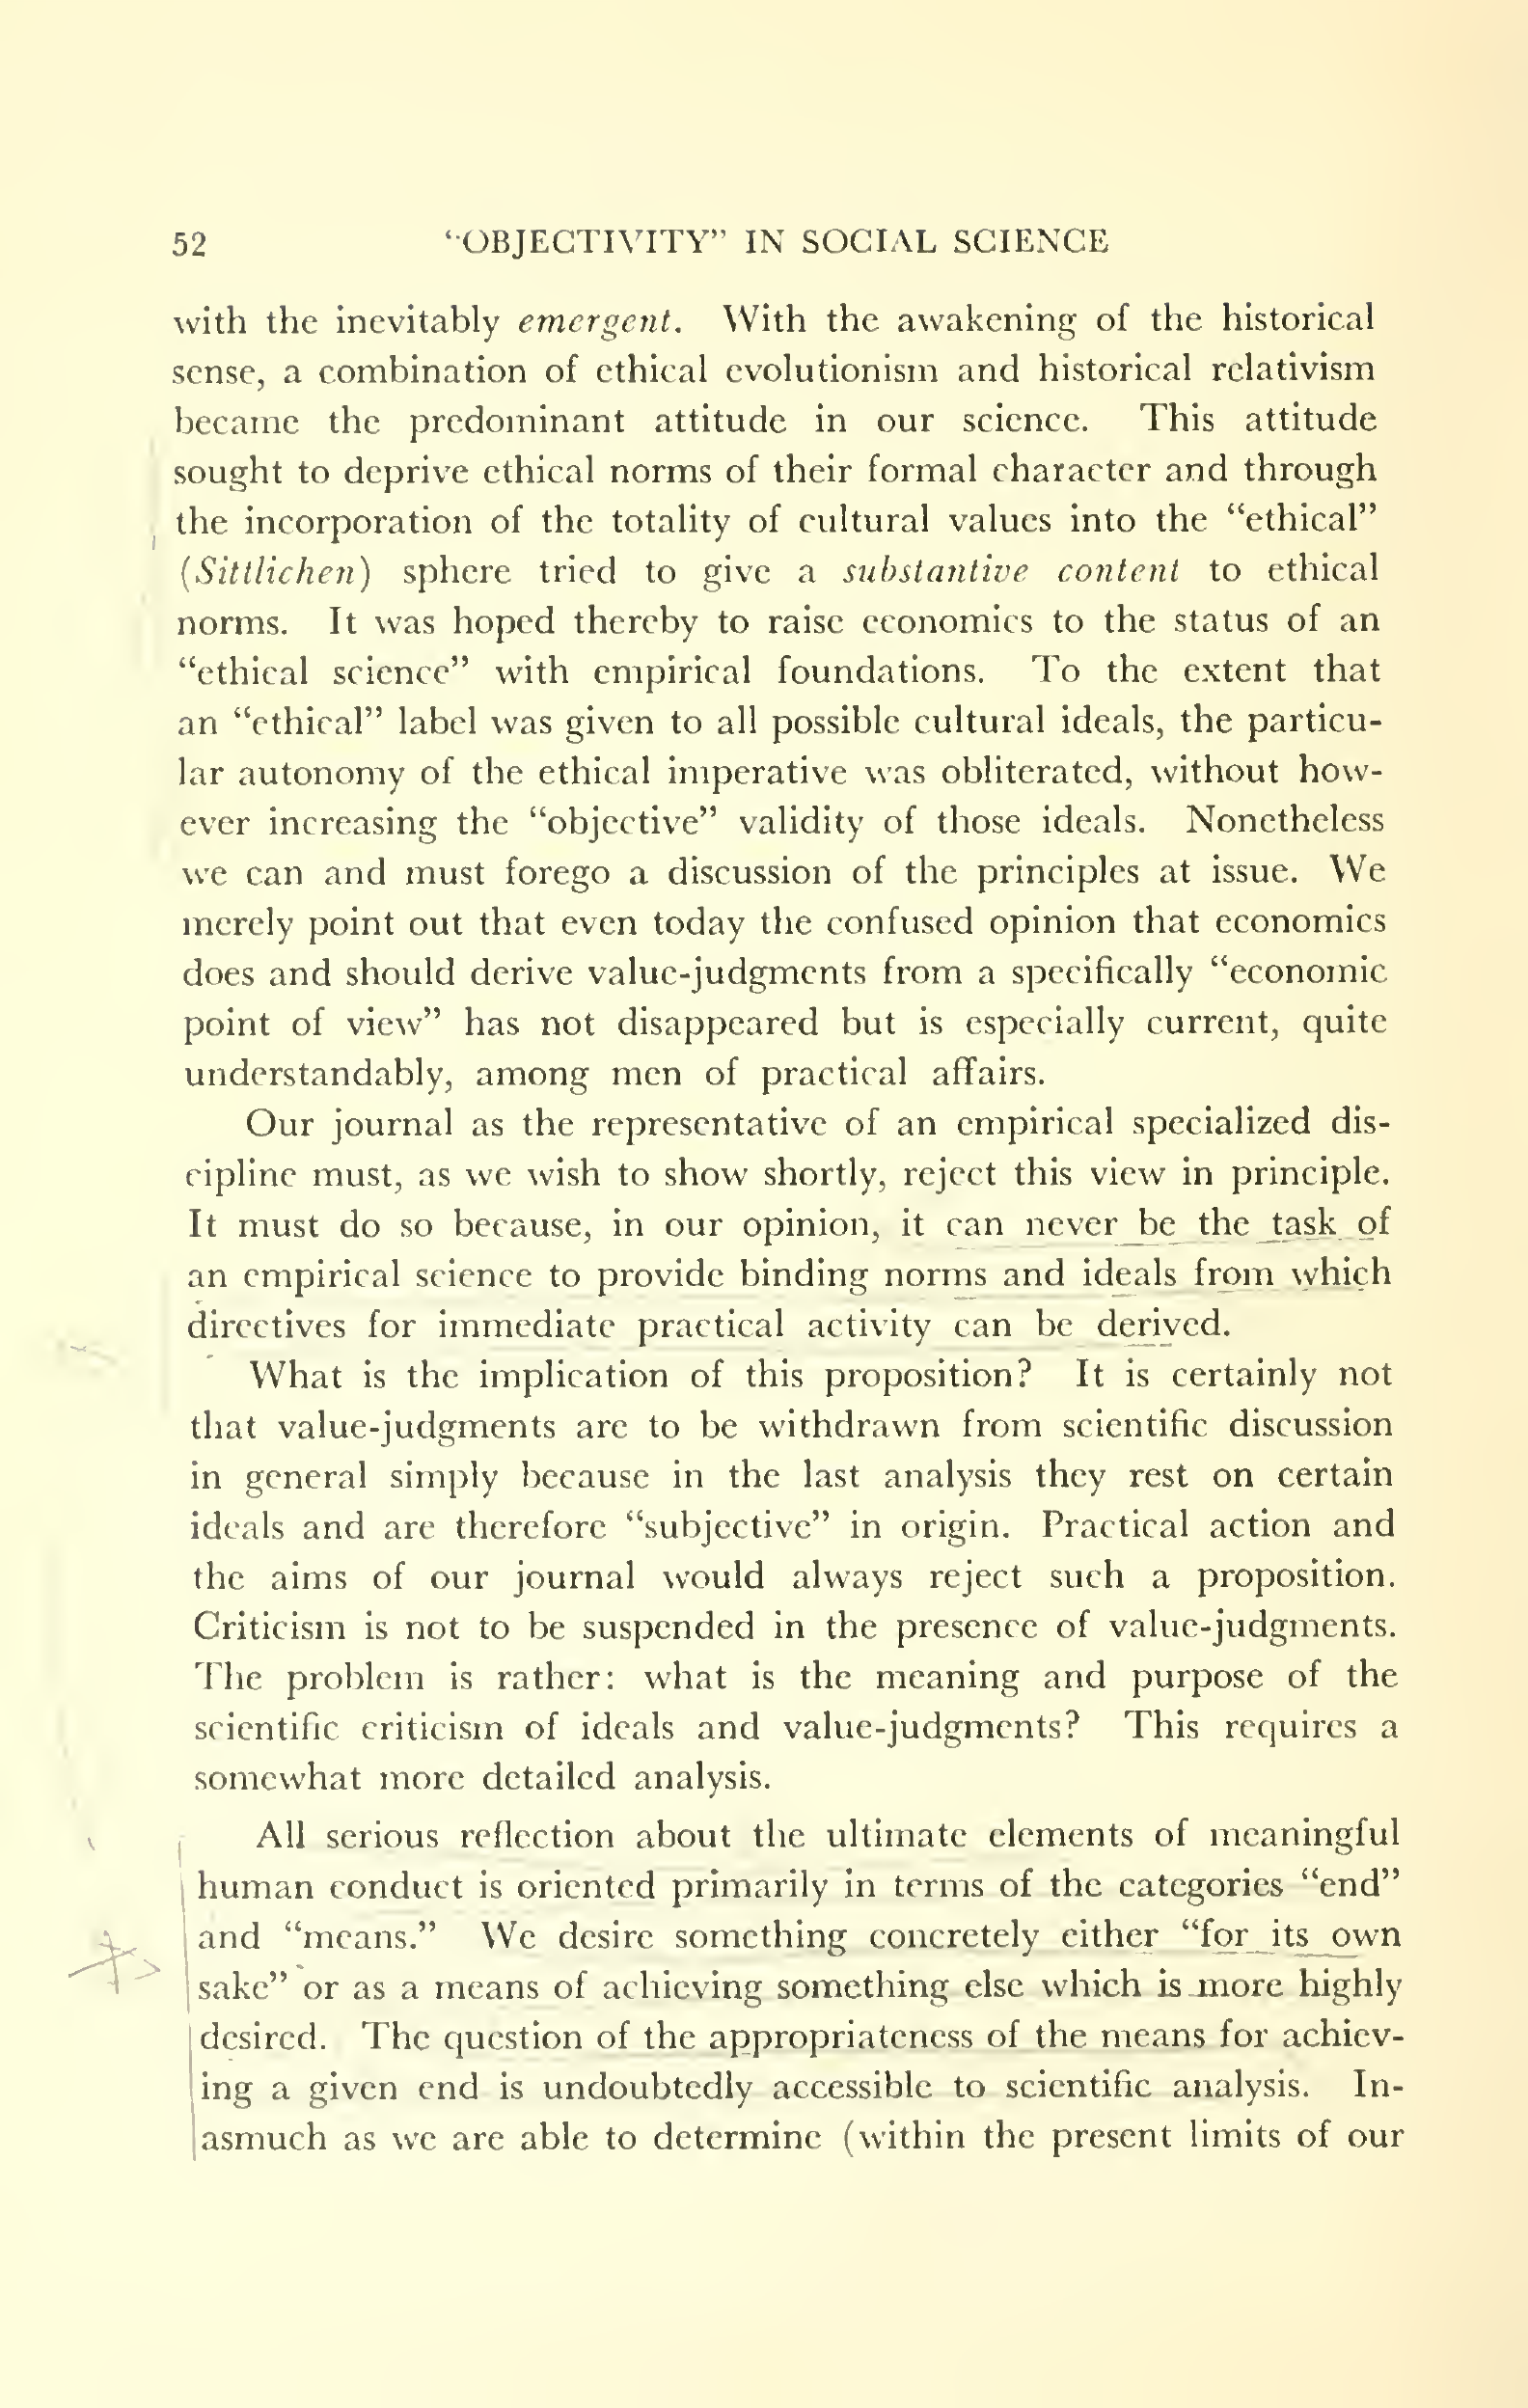 52 "OBJECTIVITY" IN SOCIAL SCIENCE
with the inevitably emergent. With the awakening of the historical
sense, a combination of ethical evolutionism and historical relativism
became the predominant attitude in our science. This attitude
sought to deprive ethical norms of their formal character and through
the incorporation of the totality of cultural values into the "ethical"
(Sittlichen) sphere tried to give a substantive content to ethical
norms. It was hoped thereby to raise economics to the status of an
"ethical science" with empirical foundations. To the extent that
an "ethical" label was given to all possible cultural ideals, the particu-
lar autonomy of the ethical imperative was obliterated, without how-
ever increasing the "objective" validity of those ideals. Nonetheless
we can and must forego a discussion of the principles at issue. We
merely point out that even today the confused opinion that economics
does and should derive value-judgments from a specifically "economic
point of view" has not disappeared but is especially current, quite
understandably, among men of practical affairs.
Our journal as the representative of an empirical specialized dis-
cipline must, as we wish to show shortly, reject this view in principle.
It must do so because, in our opinion, it can never be the task of
an empirical science to provide binding norms and ideals from which
directives for immediate practical activity can be derived.
What is the implication of this proposition? It is certainly not
that value-judgments are to be withdrawn from scientific discussion
in general simply because in the last analysis they rest on certain
ideals and are therefore "subjective" in origin. Practical action and
the aims of our journal would always reject such a proposition.
Criticism is not to be suspended in the presence of value-judgments.
The problem is rather: what is the meaning and purpose of the
scientific criticism of ideals and value-judgments? This requires a
somewhat more detailed analysis.
All serious reflection about the ultimate elements of meaningful
human conduct is oriented primarily in terms of the categories "end"
and "means." We desire something concretely either "for its own
sake" or as a means of achieving something else which is more highly
desired. The question of the appropriateness of the means for achiev-
ing a given end is undoubtedly accessible to scientific analysis. In-
asmuch as we are able to determine (within the present limits of our